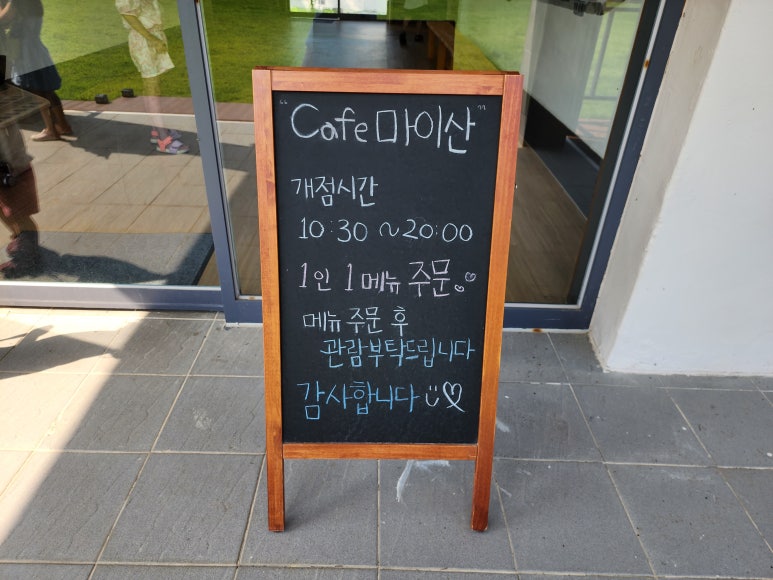 "Cafe 마이산"
개점시간
10:30 ~20:00
1인 1메뉴 주문
메뉴 주문 후
관람부탁드립니다
감사합니다